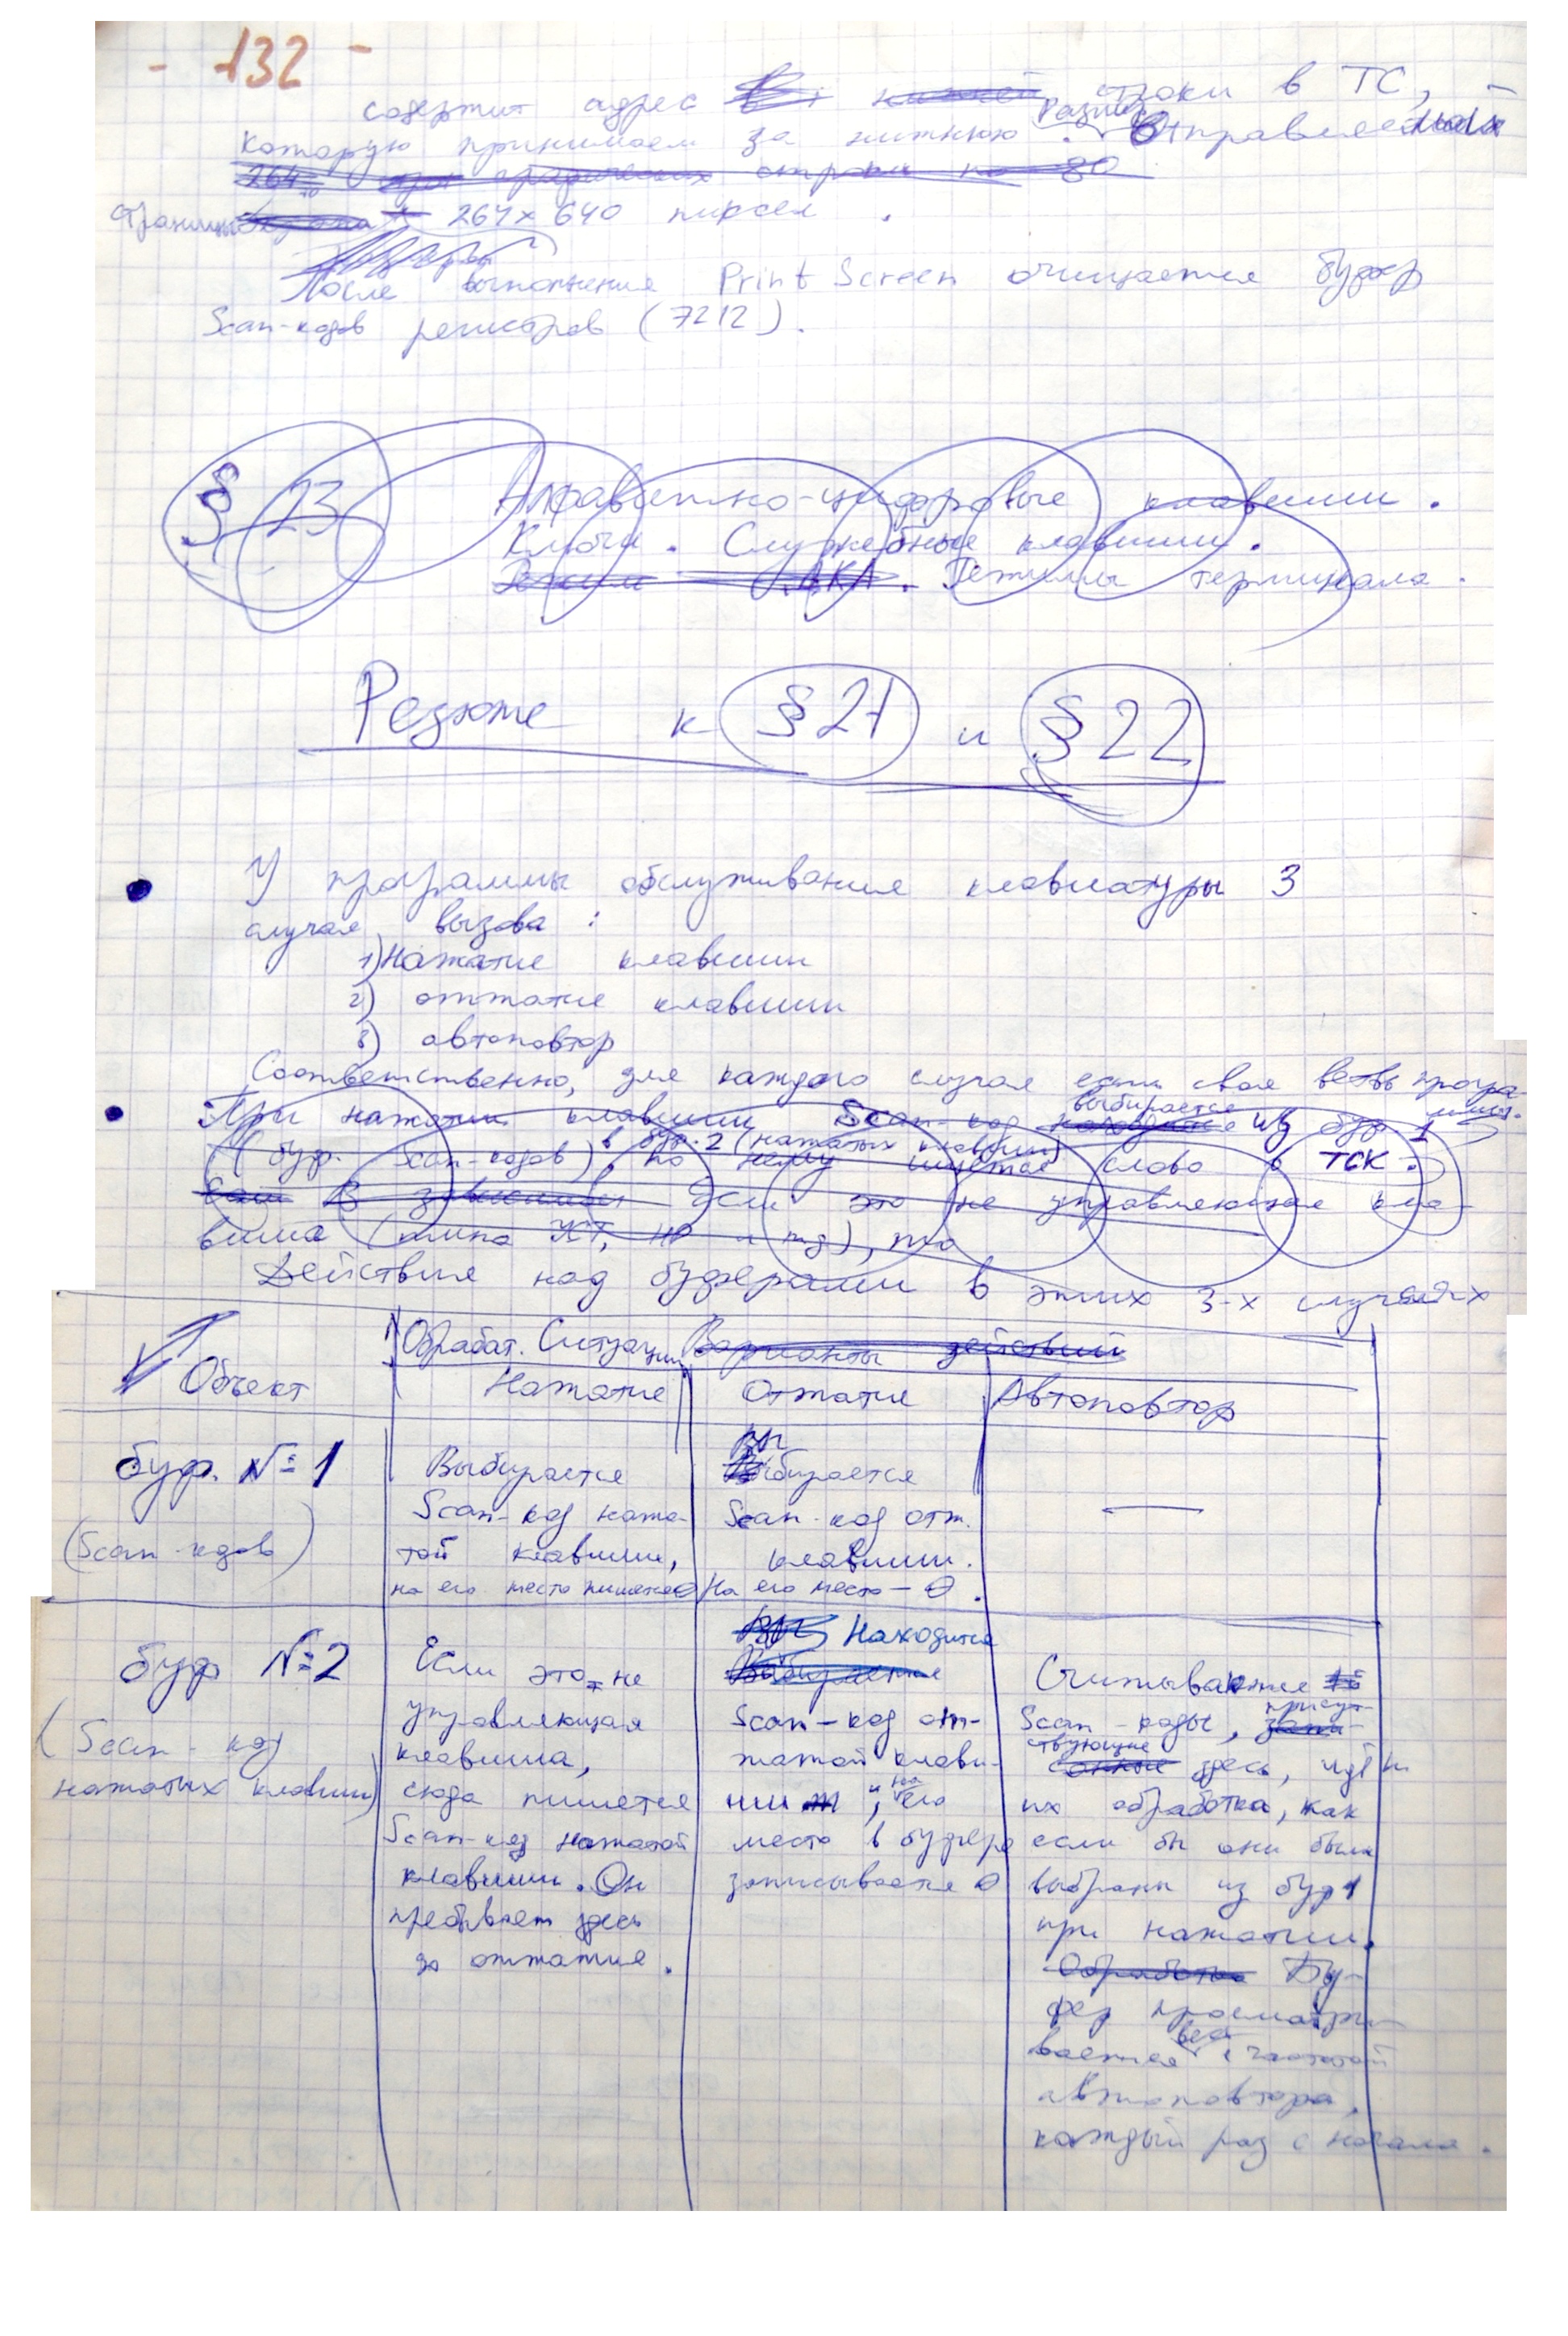 - 132 -
содержит адрес нижней строки в ТС,
которую принимаем за нижнюю. Размер отправляемой
264 графических строки по 80
страницы экрана 264 x 640 пиксел.
После выполнения Print Screen очищается буфер
Scan-кодов регистров (7212).
§ 23 Алфавитно-цифровые клавиши.
Ключи. Служебные клавиши.
Режим ЛКЛ. Режимы терминала.
Резюме к § 21 и § 22
У программы обслуживания клавиатуры 3
случая вызова:
1) Нажатие клавиши
2) отжатие клавиши
3) автоповтор
Соответственно, для каждого случая есть своя ветвь програ-
ммы.
При нажатии клавиши Scan-код находится выбирается из буф 1
(буф. Scan-кодов), в буф. 2 (нажатых клавиш) по нему ищется слово в ТСК.
Если это не управляющая кла-
виша (типа УСТ, НР и тд), то
Действия над буферами в этих 3-х случаях
Объект
Обрабат. Ситуации Варианты действий
Нажатие
Отжатие
Автоповтор
буф. № 1
(Scan-кодов)
Выбирается
Scan-код нажа-
той клавиши,
на его место пишется 0
Выбирается
Scan-код отж.
клавиши.
На его место - 0.
—
буф № 2
(Scan-код
нажатых клавиш)
Если это - не
управляющая
клавиша,
сюда пишется
Scan-код нажатой
клавиши. Он
пребывает здесь
до отжатия.
Находится
Выбирается
Scan-код от-
жатой клави-
ши, и на его
место в буфере
записывается 0
Считываются
Scan-коды, присут-
ствующие здесь, идёт
их обработка, как
если бы они были
выбраны из буф 1
при нажатии.
Обработка Бу-
фер просматри-
вается весь с частотой
автоповтора,
каждый раз с начала.